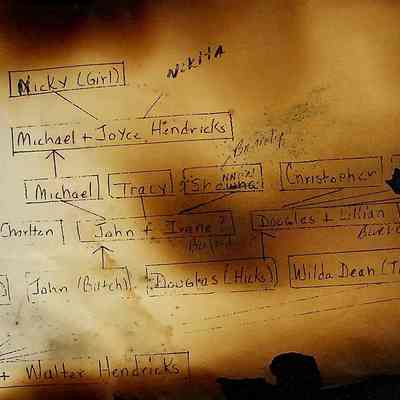 Nikita
Nicky (Girl)
Michael + Joyce Hendricks
Michael Tracy Shawna Christopher
Charlton John + Irane ? Douglas + Lillian
John (Butch) Douglas (Hicks) Wilda Dean
+ Walter Hendricks